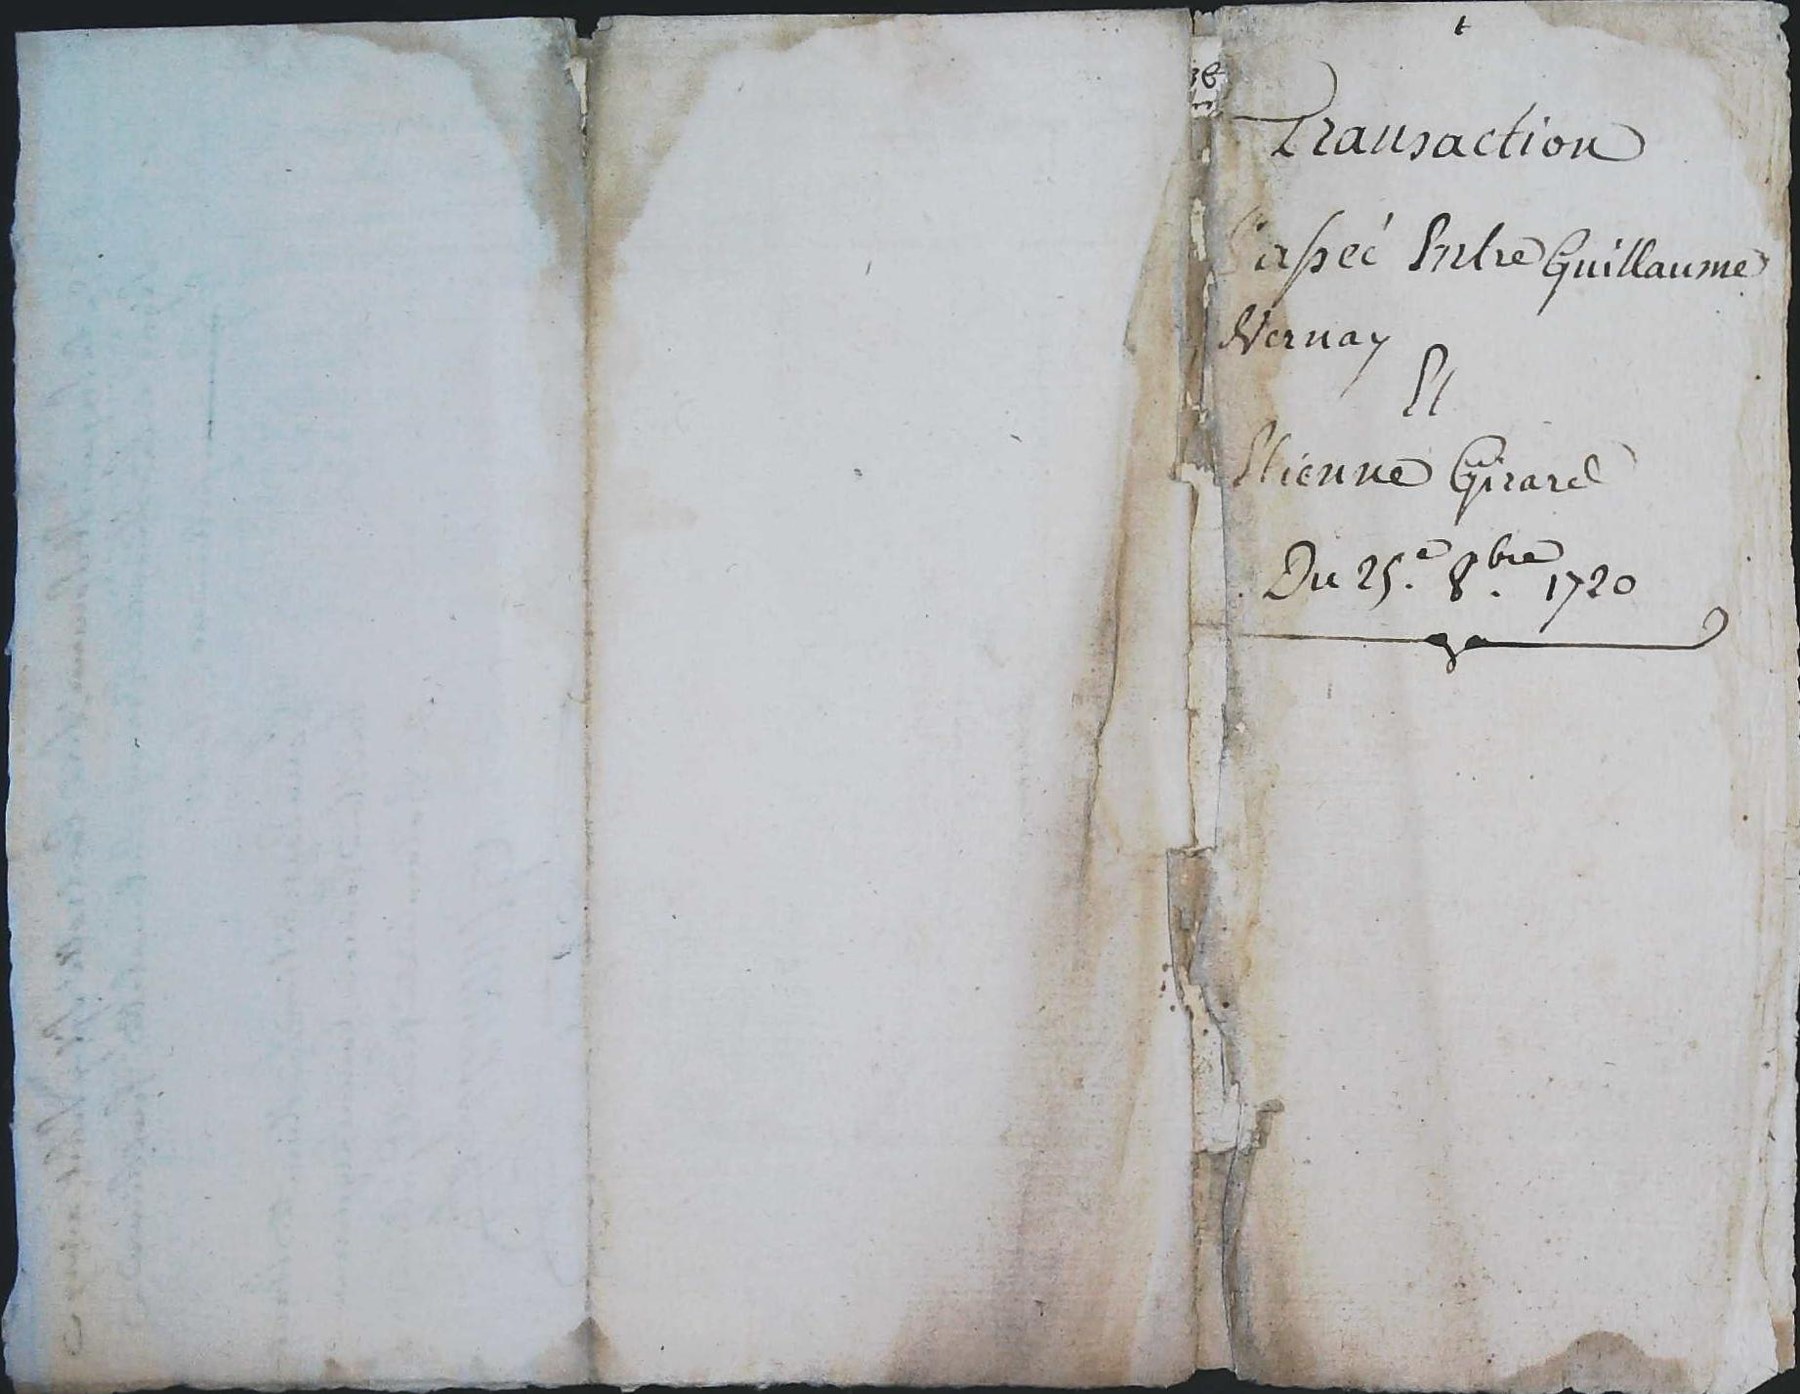 Transaction
Passeé Entre Guillaume
Vernay
Et
Etienne Girard
Du 25.e 8.bre 1720